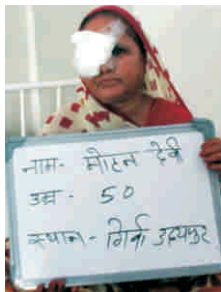 नाम- मोहन देवी
उम्र- 50
स्थान- गिर्वा उदयपुर